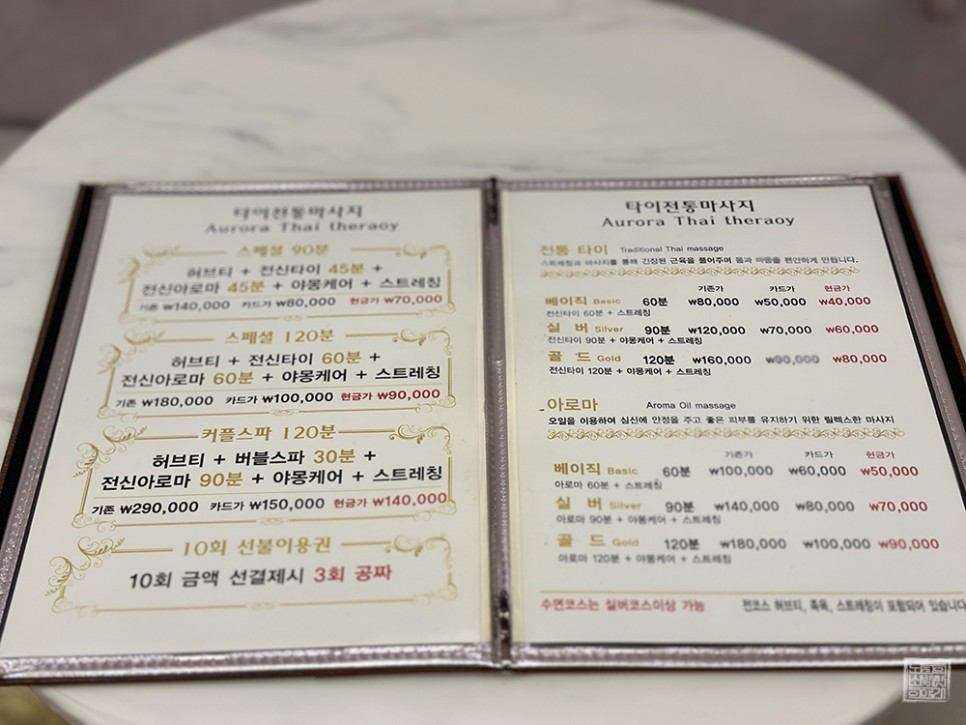 타이전통마사지
Aurora Thai theraoy
스페셜 90분
허브티 + 전신타이 45분 +
전신아로마 45분 + 야몽케어 + 스트레칭
기존 ₩140,000 카드가 ₩80,000 현금가 ₩70,000
스페셜 120분
허브티 + 전신타이 60분 +
전신아로마 60분 + 야몽케어 + 스트레칭
기존 ₩180,000 카드가 ₩100,000 현금가 ₩90,000
커플스파 120분
허브티 + 버블스파 30분 +
전신아로마 90분 + 야몽케어 + 스트레칭
기존 ₩290,000 카드가 ₩150,000 현금가 ₩140,000
10회 선불이용권
10회 금액 선결제시 3회 공짜
타이전통마사지
Aurora Thai theraoy
전통 타이 Traditional Thai massage
스트레칭과 마사지를 통해 긴장된 근육을 풀어주며 몸과 마음을 편안하게 만듭니다.
기존가 카드가 현금가
베이직 Basic 60분 ₩80,000 ₩50,000 ₩40,000
전신타이 60분 + 스트레칭
실 버 Silver 90분 ₩120,000 ₩70,000 ₩60,000
전신타이 90분 + 야몽케어 + 스트레칭
골 드 Gold 120분 ₩160,000 ₩90,000 ₩80,000
전신타이 120분 + 야몽케어 + 스트레칭
아로마 Aroma Oil massage
오일을 이용하여 심신에 안정을 주고 좋은 피부를 유지하기 위한 릴렉스한 마사지
기존가 카드가 현금가
베이직 Basic 60분 ₩100,000 ₩60,000 ₩50,000
아로마 60분 + 스트레칭
실 버 Silver 90분 ₩140,000 ₩80,000 ₩70,000
아로마 90분 + 야몽케어 + 스트레칭
골 드 Gold 120분 ₩180,000 ₩100,000 ₩90,000
아로마 120분 + 야몽케어 + 스트레칭
수면코스는 실버코스이상 가능 전코스 허브티, 족욕, 스트레칭이 포함되어 있습니다